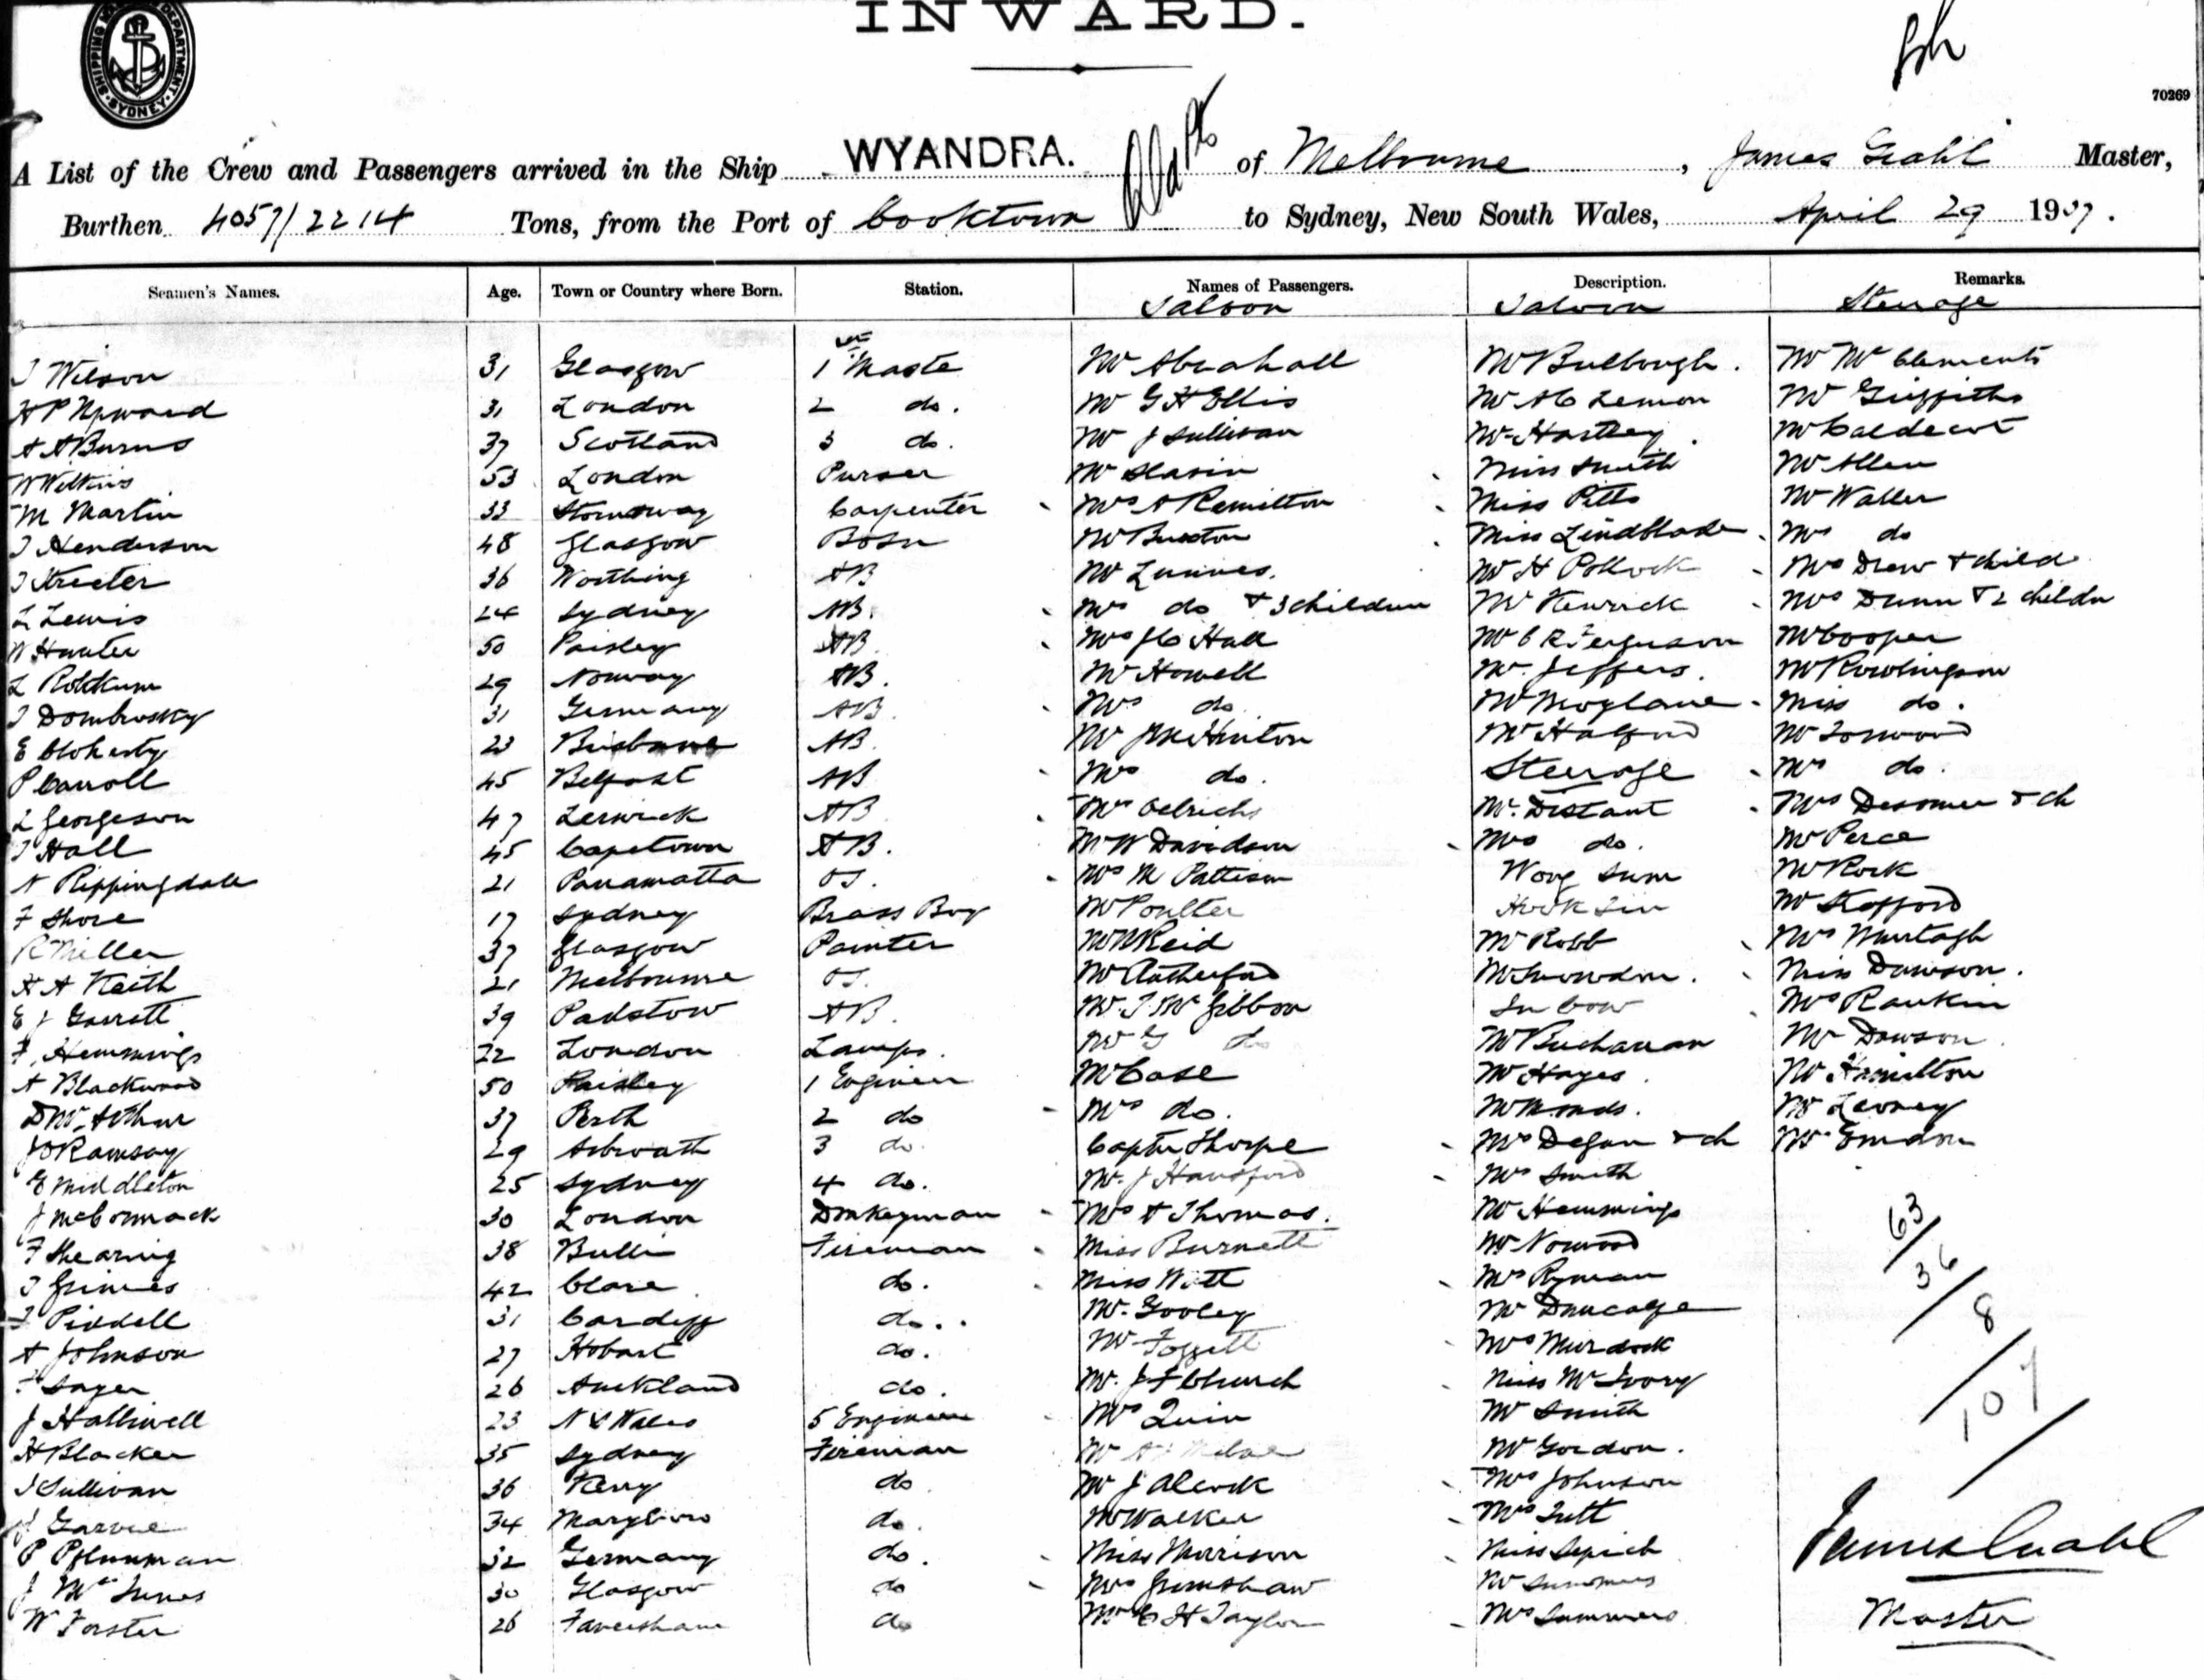 INWARD.
SHIPPING DEPARTMENT SYDNEY
70269
A List of the Crew and Passengers arrived in the Ship WYANDRA. of Melbourne, James Master,
Burthen 4057/2214 Tons, from the Port of Cooktown to Sydney, New South Wales, April 29 1907.
Seamen's Names. Age. Town or Country where Born. Station. Names of Passengers. Description. Remarks.
Saloon Saloon Steerage
J Wilson 31 Glasgow 1st Mate Mr Abrahall Mr Bulbough. Mr McClements
H P Upward 31 London 2 do. Mr G H Ellis Mr A C Lemon Mr Griffiths
A A Burns 37 Scotland 3 do. Mr J Sullivan Mr Hartley. Mr Caldecot
W Wilkins 53 London Purser Mr Slavin Miss Smith Mr Allen
M Martin 33 Stornoway Carpenter Mrs A Hamilton Miss Pitts Mr Waller
J Henderson 48 Glasgow Bosn Mr Buxton Miss Lindblade Mrs do
J Streeter 36 Worthing AB Mr Mr H Pollock Mrs Drew & child
L Lewis 24 Sydney AB. Mrs do & 3 children Mr Kenrick Mrs Dunn & 2 childn
W Hunter 50 Paisley AB. Mrs J C Hall Mr C R Ferguson Mr Cooper
L Rokkum 29 Norway AB. Mr Howell Mr Jeffers. Mr Rowlingson
J Dombrosky 31 Germany AB. Mrs do Mr Moylane Miss do.
E Cloherty 23 Brisbane AB. Mr Hinton Mr Halford Mr Torwood
P Carroll 45 Belfast AB Mrs do. Steerage Mrs do.
L Georgeson 47 Lerwick AB Mrs Oelrichs Mr. Distant Mrs Desomer & ch
J Hall 45 Capetown AB. Mr W Davidson Mrs do. Mr Perce
N Reppingdale 21 Parramatta OS. Mrs M Pattison Wong Sum Mr Rock
F Shore 17 Sydney Brass Boy Mr Poulter Hook Sin Mr Stafford
R Miller 37 Glasgow Painter Mr Reid Mr Robb Mrs Murtagh
H A Keith 21 Melbourne OS. Mr Rutherford Mr Snowdon. Miss Dawson.
E J Garrett 39 Padstow AB. Mr. J McGibbon Su Cow Mrs Rankin
F. Hemmings 22 London Lamps. Mr G do Mr Buchanan Mr Dawson
A Blackwood 50 Paisley 1 Engineer Mr Case Mr Hayes. Mr Hamilton
D McArthur 37 Perth 2 do Mrs do. Mr Monds. Mr Leoney
J O Ramsay 29 Arbroath 3 do. Captn Thorpe Mrs Degan & ch Mr
G Middleton 25 Sydney 4 do. Mr. J Hansford Mrs Smith
J McCormack 30 London Donkeyman Mrs A Thomas. Mr Hemmings
F Shearing 38 Bulli Fireman Miss Burnett Mr Norwood
J Grimes 42 Clare do. Miss Witt Mrs Ryman
J Piddell 31 Cardiff do. Mr. Gooley Mr Dancage
A Johnson 27 Hobart do. Mr Foggitt Mrs Murdock
F Sayer 26 Auckland do. Mr. J F Church Miss McIvory
J Halliwell 23 N S Wales 5 Engineer Mrs Quin Mr Smith
H Blacker 35 Sydney Fireman Mr Mr Gordon.
J Sullivan 36 Kerry do Mr J Alcock Mrs Johnson
J Garvie 34 Maryboro do. Mr Walker Mrs Tutt
P Pflunman 32 Germany do. Miss Morrison Miss Sepich
J McInnes 30 Glasgow do Mrs Grimshaw Mr Summers
W Forster 26 Faversham do Mr C H Taylor Mrs Summers
63/
36/
8/
107/
James
Master